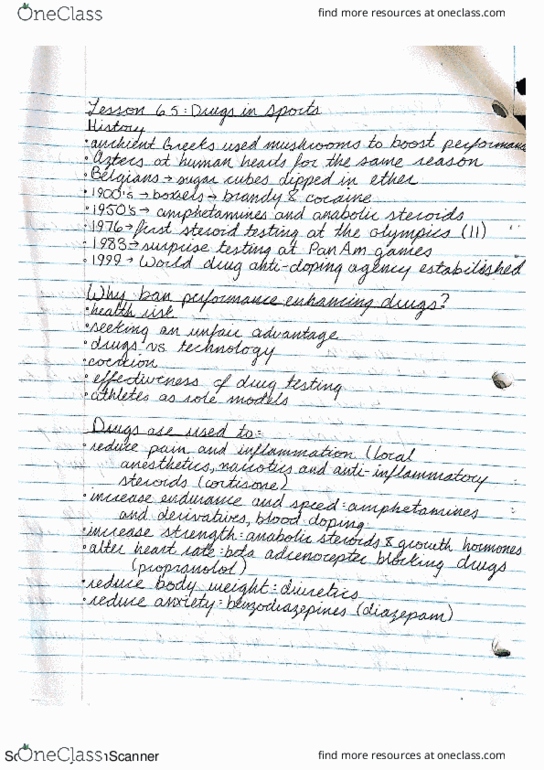 OneClass
find more resources at oneclass.com
Lesson 65: Drugs in Sports
History
• anchient Greeks used mushrooms to boost performan
• Aztecs at human hearts for the same reason
• Belgians → sugar cubes dipped in ether
• 1900's → boxers → brandy & cocaine
• 1950's → amphetamines and anabolic steroids
• 1976 → first steroid testing at the olympics (11)
• 1983 → surprise testing at Pan Am games
• 1999 → World drug anti-doping agency established
Why ban performance enhancing drugs?
• health risk
• seeking an unfair advantage
• drugs vs technology
• coercion
• effectiveness of drug testing
• athletes as role models
Drugs are used to:
• reduce pain and inflammation (local
anesthetics, narcotics and anti-inflammatory
steroids (cortisone)
• increase endurance and speed: amphetamines
and derivatives, blood doping
• increase strength: anabolic steroids & growth hormones
• alter heart rate: beta adrenoceptor blocking drugs
(propranolol)
• reduce body weight: diuretics
• reduce anxiety: benzodiazepines (diazepam)
OneClass
Scanner
find more resources at oneclass.com